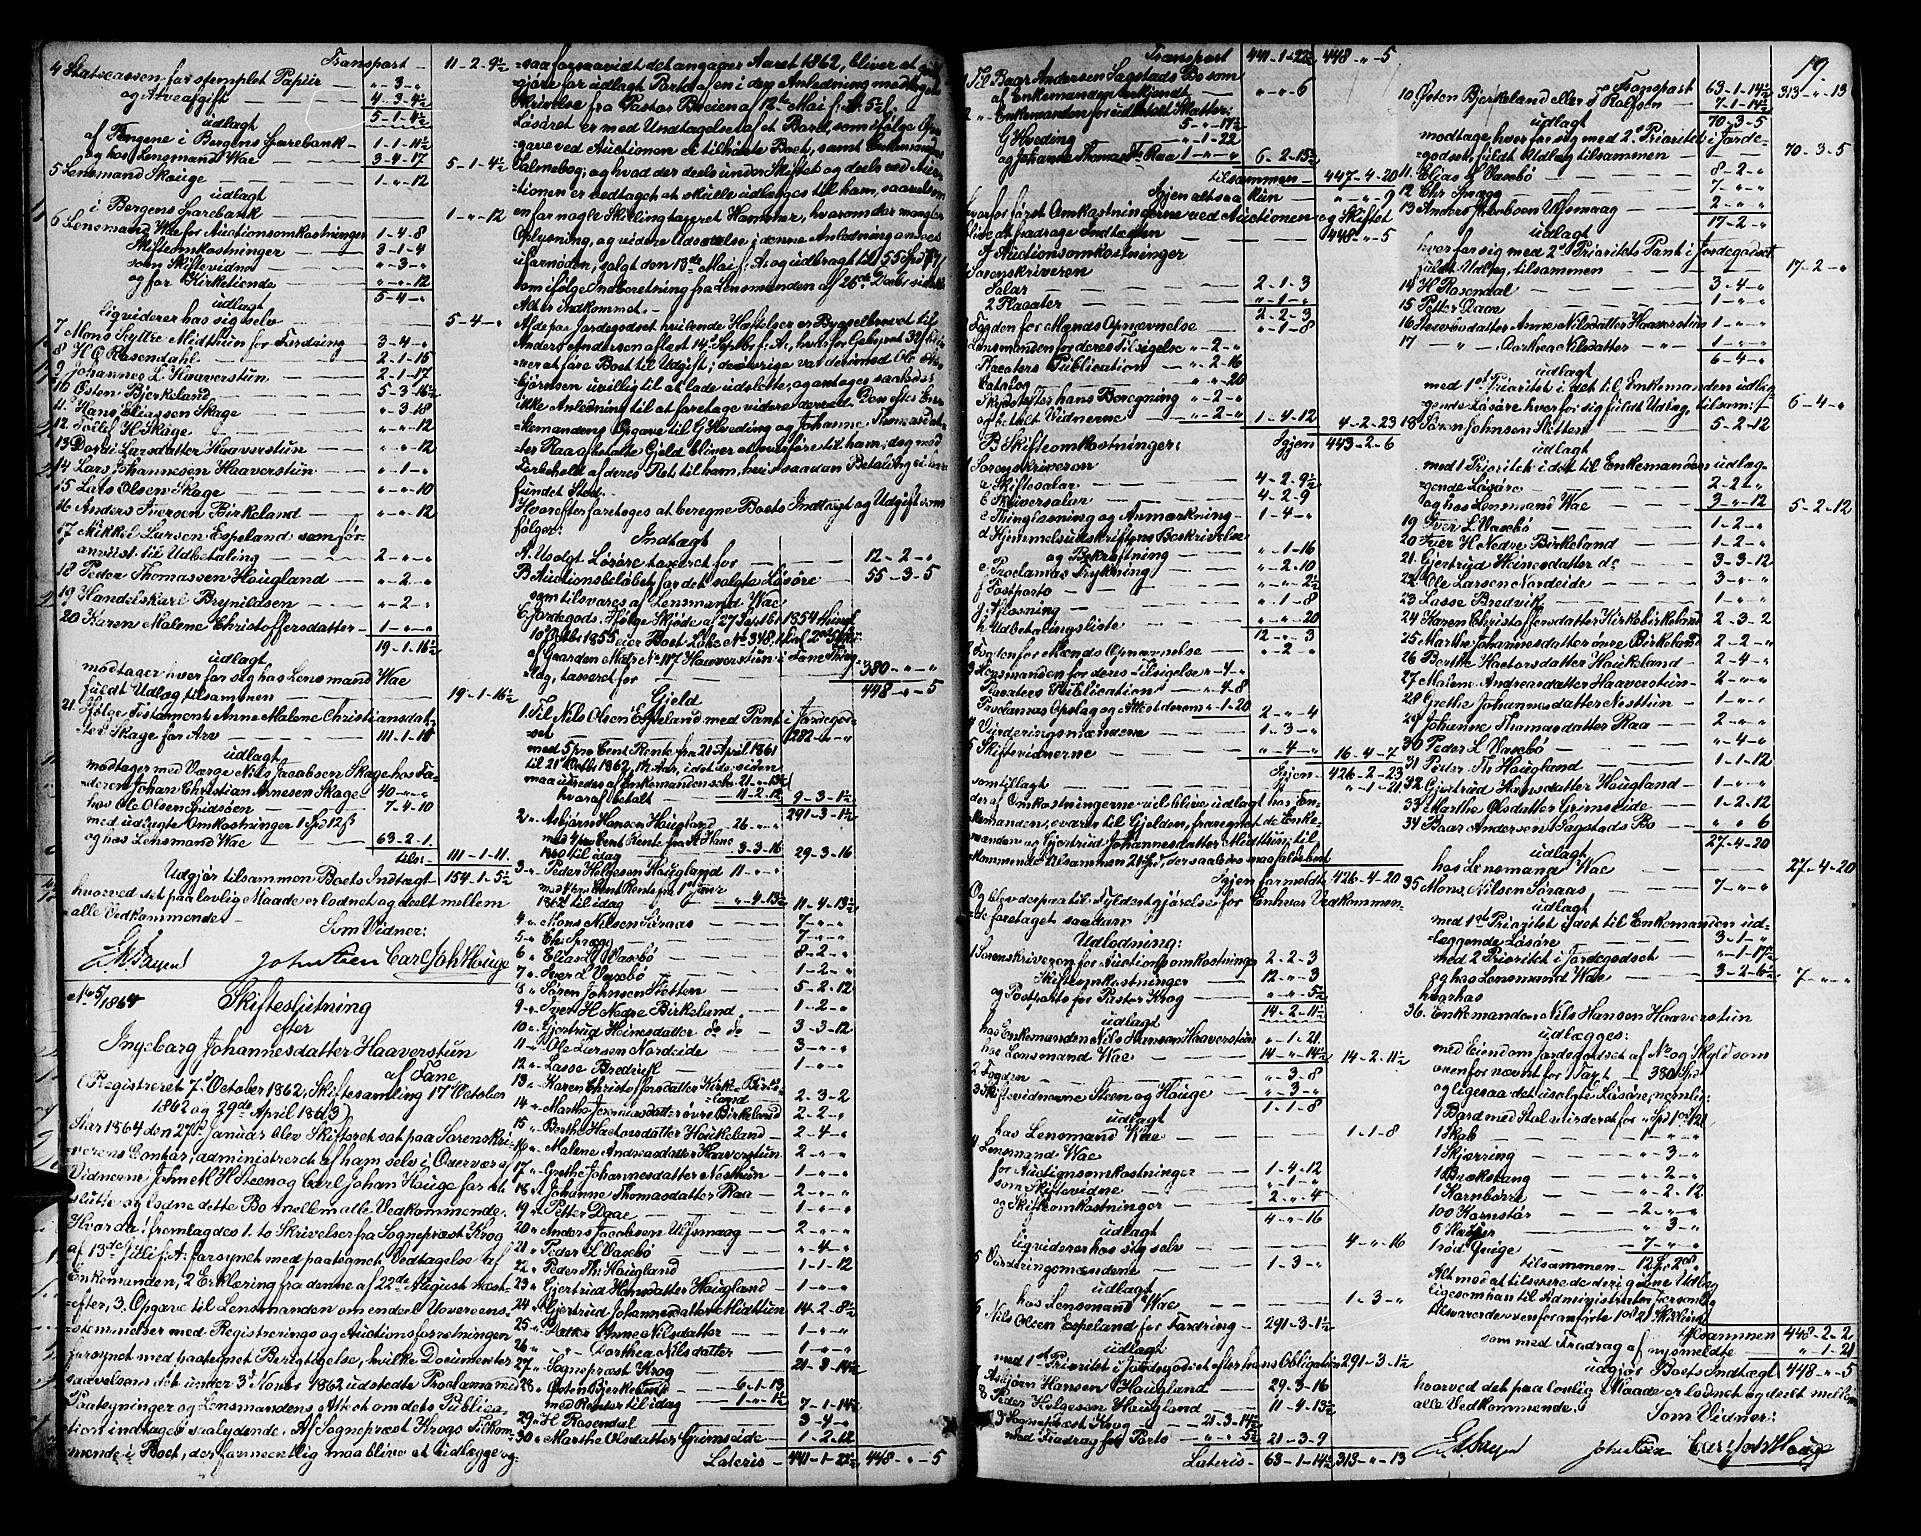 Transport — 11-2-9½
4 Statscassen for stemplet Papiir — "-3-"
og Arveafgift — 4-3-4½
udlagt 5-1-4½
af Pengene i Bergens Sparebank — 1-1-11½
og hos Lensmand Wae — 3-4-17 5-1-4½
5 Lensmand Skouge — 1-"-12
udlagt
i Bergens Sparebank 1-"-12
6 Lensmand Wae for Auctionsomkostninger 1-4-8
Skifteomkostninger 3-1-4
som Skiftevidne — "-3-"
og for Kirketiende "-"-12
udlagt 5-4-"
liqviderer hos sig selv — 5-4-"
7 Mons Sylte Midtthun for Fordring 3-4-"
8 H. C. Rosendahl — 2-1-15
9 Johannes L. Haaverstun — 2-1-17
10 Østen Bjerkeland — 5-3-16½
11 Hans Eliassen Skage — "-3-18
12 Tollef H Skage — "-"-12
13 Dordi Larsdatter Haaverstun — "-"-12
14 Lars Johannesen Haaverstun — "-1-"
15 Lars Olsen Skage — "-"-10
16 Anders Iversen Birkeland — "-"-12
17 Mikkel Larsen Espeland som for
anvist til Udbetaling 2-"-"
18 Peder Thomassen Hougland — "-2-"
19 Handelskarl Brynildsen — "-2-"
20 Karen Malene Christoffersdatter — 1-"-"
19-1-16½
udlagt
modtager hver for sig hos Lensmand Wae
fuldt Udlæg tilsammen — 19-1-16½
21. Ifølge Testament Anne Malene Christiansdat-
ter Skage for Arv — 111-1-11
udlagt
modtager med Værge Nils Jacobsen Skage hos Fa-
deren Johan Christian Annesen Skage 40-"-"
hos Ole Olsen 7-4-10
med udlagte Omkostninger 1 Spd 12 ß
og hos Lensmand Wae — 63-2-1
tils: 111-1-11.
Udgjør tilsammen Boets Indtægt — 154-1-5½
hvorved det paa lovlig Maade er lodnet og deelt mellem
alle Vedkommende.
Som Vidner:
John Steen Carl Joh Houge
No 5/1864 Skifteslutning
efter
Ingeborg Johannesdatter Haaverstun
af Fane
(Registreret 7de October 1862, Skiftesamling 17de October
1862 og 29de April 1863)
Aar 1864 den 27de Januar blev Skifteret sat paa Sorenskri-
verens Contor, administreret af ham selv i Overvær af
Vidnerne John M. H. Steen og Carl Johan Houge for at
slutte og lodne dette Bo mellem alle Vedkommende.
Hvorda fremlagdes 1. to Skrivelser fra Sognepræst Krog
af 13de Juli f: A: forsynet med paategnet Vedtagelse af
Enkemanden, 2 Erklæring fra denne af 22de August næst-
efter, 3. Opgave til Lensmanden om endel Uovereens-
stemmelser med Registrerings og Auctionsforretningen
forsynet med paategnet Berigtigelse, hvilke Documenter
saavelsom det under 3de Novbr 1862 udstedte Proclama med
Paategninger og Lensmandens Attest om dets Publica-
tion indtages saalydende. Af Sognepræst Krogs Tilkom-
mende i Boet, der formeentlig maa blive at udlægge og-
saa forsaavidt det angaaer Aaret 1862, bliver at
gjøre for udlagt Porto af en i den Anledning modtagen
Skrivelse fra Pastor Breien af 12te Mai f: A: 5½ ß.
Løsøret er med Undtagelse af et Bord, som ifølge Op-
gave ved Auctionen ei tilhørte Boet, samt Enkemandens
Salmebog, og hvad der deels under Skiftet og deels ved Auc-
tionen er vedtaget at skulle udlægges til ham, saavelsom
en for nogle Skilling taxeret Hammer, hvorom der mangler
Oplysning, og videre Udsættelse i denne Anledning ansees
ufornøden, solgt den 18de Mai f: A: og udbragt til 55 Spd
som ifølge Indberetning fra Lensmanden af 26de Decbr sidste
Aar er indkommet.
Af de paa Jordegodset hvilende Hæftelser er Bygselbrevet til
Anders Andersen aflyst 14de Septbr f: A:, hvorfor Gebyret
at føre Boet til Udgift; derimod Ole
Bjørnsen uvillig til at lade udslette, og antages saaledes
ikke Anledning til at foretage videre derved. Den efter En-
kemandens Opgave til G Hveding og Johanne Thomasdat-
ter Raa afbetalte Gjeld bliver at overføre til ham, dog med
Forbehold af deres Ret til ham, hvis saadan Betaling ei har
fundet Sted.
Hvorefter foretoges at beregne Boets Indtægt og Udgift som
følger:
Indtægt
A. Usolgt Løsøre taxeret for — 12-2-"
B Auctionsbeløbet for det solgte Løsøre 55-3-5
som tilsvares af Lensmand Wae
C. Jordegods. Ifølge Skjøde af 27 Septbr 1854 thinglæst
10 Octbr 1855 eier Boet Løbe No 348
af Gaarden Matr No 117 Haaverstun i Fane Thing-
lag, taxeret for — 380-"-"
448-"-5
Gjeld
1. Til Nils Olsen Espeland med Pant i Jordegod-
set 282-"-"
med 5 pro Cent Rente fra 21 April 1861
til 21de Octbr 1862, 1½ Aar, idet de siden
maa udredes af Enkemanden selv 21-"-13½
hvoraf betalt — 11-2-12 9-3-1½
291-3-1½
2 " Asbjørn Hansen Hougland — 26-"-"
med 4 pro Cent Rente fra
1860 til idag — 3-3-16 29-3-16
3 " Peder Helgesen Hougland 11-"-"
med 4 pro Cent Rente fra 1ste Janr
1862 til idag — "-4-13½ 11-4-13½
4 " Mons Nilsen Søraas — 7-"-"
5 " Chr Sprægg — 7-"-"
6 " Elias L Vasebø — 8-2-"
7 " Iver L Vasebø — 1-2-"
8 " Søren Johnsen Sletten — 5-2-12
9 " Iver H Nedre Birkeland — 1-2-"
10 " Gjertrud Heinesdatter do do — 3-3-12
11 " Ole Larsen Nordeide — 3-"-"
12 " Lasse Bredvik — 1-"-"
13 " Karen Christoffersdatter Kirke-Birke-
land — 2-3-2
14 " Marthe Johannesdatter øvre Birkeland 2-2-"
15 " Berthe Hactorsdatter Houkeland — 2-4-"
16 " Malene Andreasdatter Haaverstun 2-"-"
17 " Grethe Johannesdatter Nesttun — 1-"-"
18 " Johanne Thomasdatter Raa — 2-"-"
19 " Petter Daae — 1-"-"
20 " Anders Jacobsen Ulfsmaag — 2-"-"
21 " Peder L Vasebø — "-4-"
22 " Peder Th. Hougland — 1-1-12
23 " Gjertrud Hansdatter Hougland — 1-"-"
24 " Gjertrud Johannesdatter Midttun 14-2-8½
25 " Datter Anne Nilsdatter — 1-"-"
26 " " " Dorthea Nilsdatter — 1-"-"
27 " Sognepræst Krog — 21-3-14½
28 " Østen Bjerkeland — 6-1-13
med Renter til idag — 1-"-1½ 7-1-14½
29 " H. Rosendal — 3-4-"
30 " Marthe Olsdatter Grimseide — 1-2-12
Lateris — 441-1-22½ 448-"-5
19.
Transport 441-1-22½ 448-"-5
Til Baar Andersen Sagstads Bo som
af Enkemanden vedkjendt — "-"-6
" Enkemanden for udbetalt Skatter:
G Hveding "-1-22
og Johanne Thomasdtr Raa 1-"-" 6-2-15½
tilsammen — 447-4-20
Igjen altsaa kun — "-"-9
hvorfor først Omkostningerne ved Auctionen og Skiftet
blive at fradrage Indtægten — 448-"-5
A Auctionsomkostninger
Sorenskriveren
Salær — 2-1-3
2 Placater — "-1-"
2-2-3
Fogden for Mænds Opnævnelse — "-1-8
Lensmanden for deres Tilsigelse "-2-"
Placaters Publication — "-2-16
Catalog — "-"-20
Skyds efter hans Beregning "-2-"
og betalt Vidnerne — "-2-" 1-4-12 4-2-23
B Skifteomkostninger: Igjen 443-2-6
1 Sorenskriveren
a Skiftesalær — 4-2-9½
b Skriversalær — 4-2-9
c Thinglæsning og Anmærkning — 1-4-"
d Hjemmelsudskriftens Beskrivelse
og Bekræftning — "-1-16
e Proclamas Trykning — "-2-10
f Postporto — "-"-2½
g Aflæsning — "-1-8
h Udbetalingsliste — "-"-20
12-"-3
2 Fogden for Mænds Opnævnelse — "-2-"
3 Lensmanden for deres Tilsigelse "-4-"
Placaters Publication — "-4-8
Proclamas Opslag og Attest derom "-1-20 2-"-4
4 Vurderingsmændene — 1-3-"
5 Skiftevidnerne — "-4-" 16-4-7
Igjen — 426-2-23
som tillagt — "-1-21
der af Omkostningerne vil blive udlagt hos En-
kemanden, svarer til Gjelden, fraregnet de Enke-
manden og Gjertrud Johannesdatter Midttun til-
kommende tilsammen 21 Spd, der saaledes maa falde bort
Igjen formeldte 426-4-20
Og blev des paa til Fyldestgjørelse for Enhver Vedkommen-
de foretaget saadan
Udlodning:
1 Sorenskriveren for Auctionsomkostninger 2-2-3
Skifteomkostninger — 12-"-3
og Postporto for Pastor Krog — "-"-5½
14-2-11½
udlagt
hos Enkemanden Nils Hansen Haaverstun "-1-21
hos Lensmand Wae — 14-"-14½ 14-2-11½
2 Fogden — "-3-8
3 Skiftevidnerne Steen og Houge — "-3-"
1-1-8
udlagt
hos Lensmand Wae — 1-1-8
4 Lensmand Wae
for Auctionsomkostninger — 1-4-12
som Skiftevidne — "-1-"
og Skifteomkostninger — 2-"-4
4-"-16
udlagt
liqviderer hos sig selv — 4-"-16
5 Vurderingsmændene — 1-3-"
udlagt
hos Lensmand Wae — 1-3-"
6 Nils Olsen Espeland for Fordring — 291-3-1½
udlagt
med 1ste Prioritet i Jordegodset efter hans Obligation 291-3-1½
7 Asbjørn Hansen Hougland — 29-3-16
8 Peder Helgesen Hougland — 11-4-13½
9 Sognepræst Krog — 21-3-14½
med Fradrag for Porto — "-"-5½ 21-3-9
Lateris — 63-1-14½ 313-"-13
Transport 63-1-14½ 313-"-13
10 Østen Bjerkeland eller T Rolfsen — 7-1-14½
udlagt 70-3-5
modtage hver for sig med 2de Prioritet i Jorde-
godset, fuldt Udlæg tilsammen — 70-3-5
11. Elias L Vasebø — 8-2-"
12 Chr Sprægg — 7-"-"
13 Anders Jacobsen Ulfsmaag — 2-"-"
17-2-"
udlagt
hver for sig med 2de Prioritets Pant i Jordegodset
fuldt Udlæg, tilsammen — 17-2-"
14 H Rosendal — 3-4-"
15 Petter Daae — 1-"-"
16 Steddatter Anne Nilsdatter Haaverstun 1-"-"
17 — " — Dorthea Nilsdatter — " — 1-"-"
6-4-"
udlagt
med 1ste Prioritet i det til Enkemanden udlæg-
gende Løsøre hver for sig fuldt Udlæg, tilsam: 6-4-"
18 Søren Johnsen Sletten — 5-2-12
udlagt
med 1 Prioritet i det til Enkemanden udlæg-
gende Løsøre — 2-2-"
og hos Lensmand Wae — 3-"-12 5-2-12
19 Iver L Vasebø — 1-2-"
20 Iver H Nedre Birkeland — 1-2-"
21. Gjertrud Heinesdatter do — 3-3-12
22. Ole Larsen Nordeide — 3-"-"
23 Lasse Bredvik — 1-"-"
24 Karen Christoffersdatter Kirkebirkeland 2-3-2
25 Marthe Johannesdatter øvre Birkeland 2-2-"
26 Berthe Hactorsdatter Houkeland — 2-4-"
27 Malene Andreasdatter Haaverstun — 2-"-"
28 Grethe Johannesdatter Nesttun — 1-"-"
29 Johanne Thomasdatter Raa — 2-"-"
30 Peder L Vasebø — "-4-"
31 Peder Th Hougland — 1-1-12
32 Gjertrud Hansdatter Hougland — 1-"-"
33 Marthe Olsdatter Grimseide — 1-2-12
34 Baar Andersen Sagstads Bo — "-"-6
27-4-20
udlagt
hos Lensmand Wae — 27-4-20
35 Mons Nilsen Søraas — 7-"-"
udlagt
med 1ste Prioritet i det til Enkemanden ud-
læggende Løsøre — 3-1-"
med 2 Prioritet i Jordegodset — "-1-17½
og hos Lensmand Wae — 3-2-6½ 7-"-"
hvorhos
36. Enkemanden Nils Hansen Haaverstun
udlægges:
med Eiendom Jordegodset af No og Skyld som
ovenfor nævnt for Taxt — 380 Spd
og ligesaa det usolgte Løsøre, nemlig:
1 Bord med Stol vurderet for
1 Skab — 1-"-"
1 Skjæring — "-3-"
1 Brækstang — "-2-"
1 Kornbørre — "-2-12
100 Kornstør — 2-"-"
6 — "-3-"
1 rød Qvige — 7-"-"
tilsammen — 12 Spd 2 ort
Alt mod at tilsvare de deri givne Udlæg
ligesom han til Administrator personlig
tilsvarende ovenanførte 1 ort 21 Skilling
tilsammen 448-2-2
som med Fradrag af nysmeldte — "-1-21
udgjør Boets Indtægt — 448-"-5
hvorved det paa lovlig Maade er lodnet og deelt mellem
alle Vedkommende.
Som Vidner:
John Steen Carl Joh Houge